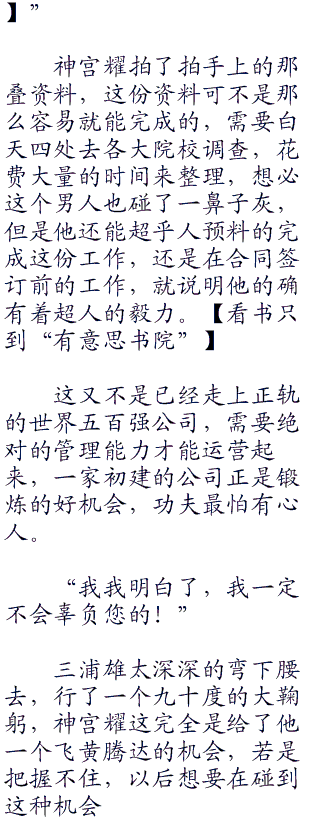 】”
神宫耀拍了拍手上的那
叠资料，这份资料可不是那
么容易就能完成的，需要白
天四处去各大院校调查，花
费大量的时间来整理，想必
这个男人也碰了一鼻子灰，
但是他还能超乎人预料的完
成这份工作，还是在合同签
订前的工作，就说明他的确
有着超人的毅力。【看书只
到“有意思书院”】
这又不是已经走上正轨
的世界五百强公司，需要绝
对的管理能力才能运营起
来，一家初建的公司正是锻
炼的好机会，功夫最怕有心
人。
“我我明白了，我一定
不会辜负您的！”
三浦雄太深深的弯下腰
去，行了一个九十度的大鞠
躬，神宫耀这完全是给了他
一个飞黄腾达的机会，若是
把握不住，以后想要在碰到
这种机会